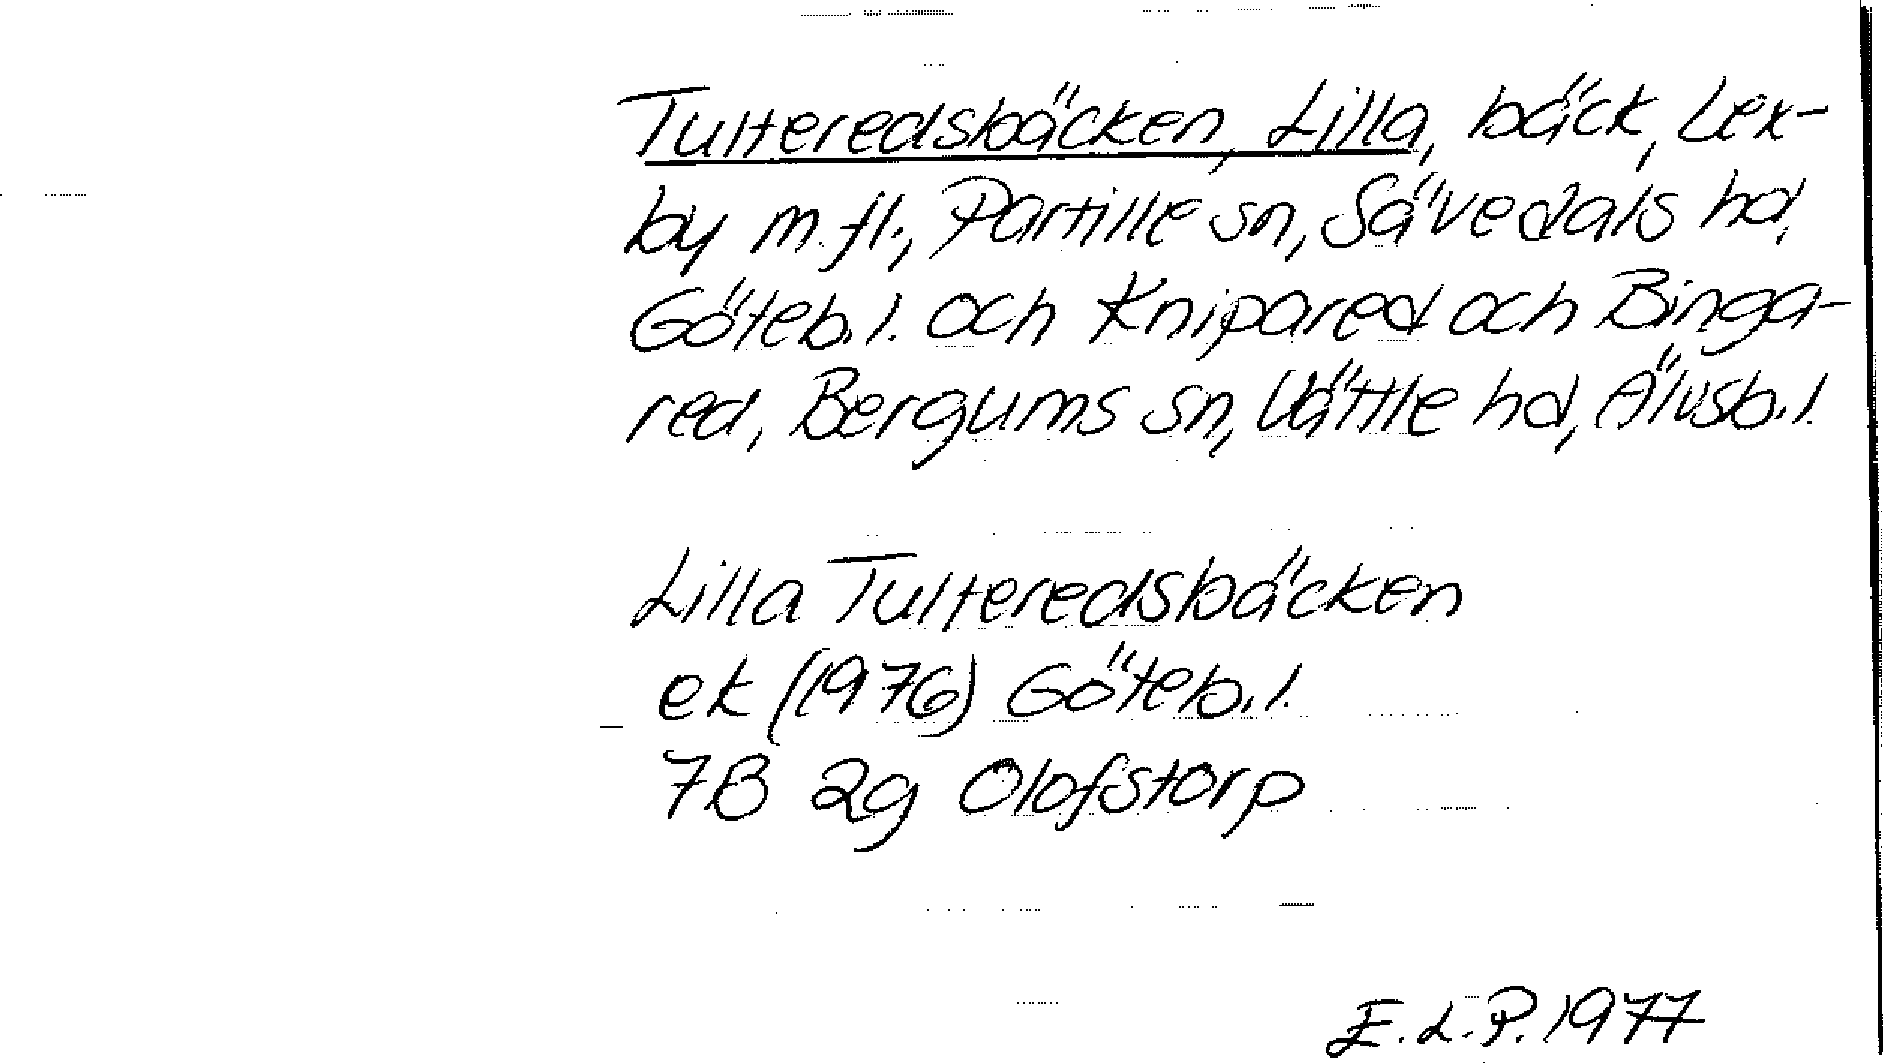 Tulteredsbäcken, Lilla, bäck, Lex-
by m.fl., Partille sn, Sävedals hd,
Göteb.l. och Knipared och Binga-
red, Bergums sn, Vättle hd, Älvsb.l.
Lilla Tulteredsbäcken
ek (1976) Göteb.l.
7B 2g Olofstorp
E.L.P. 1977